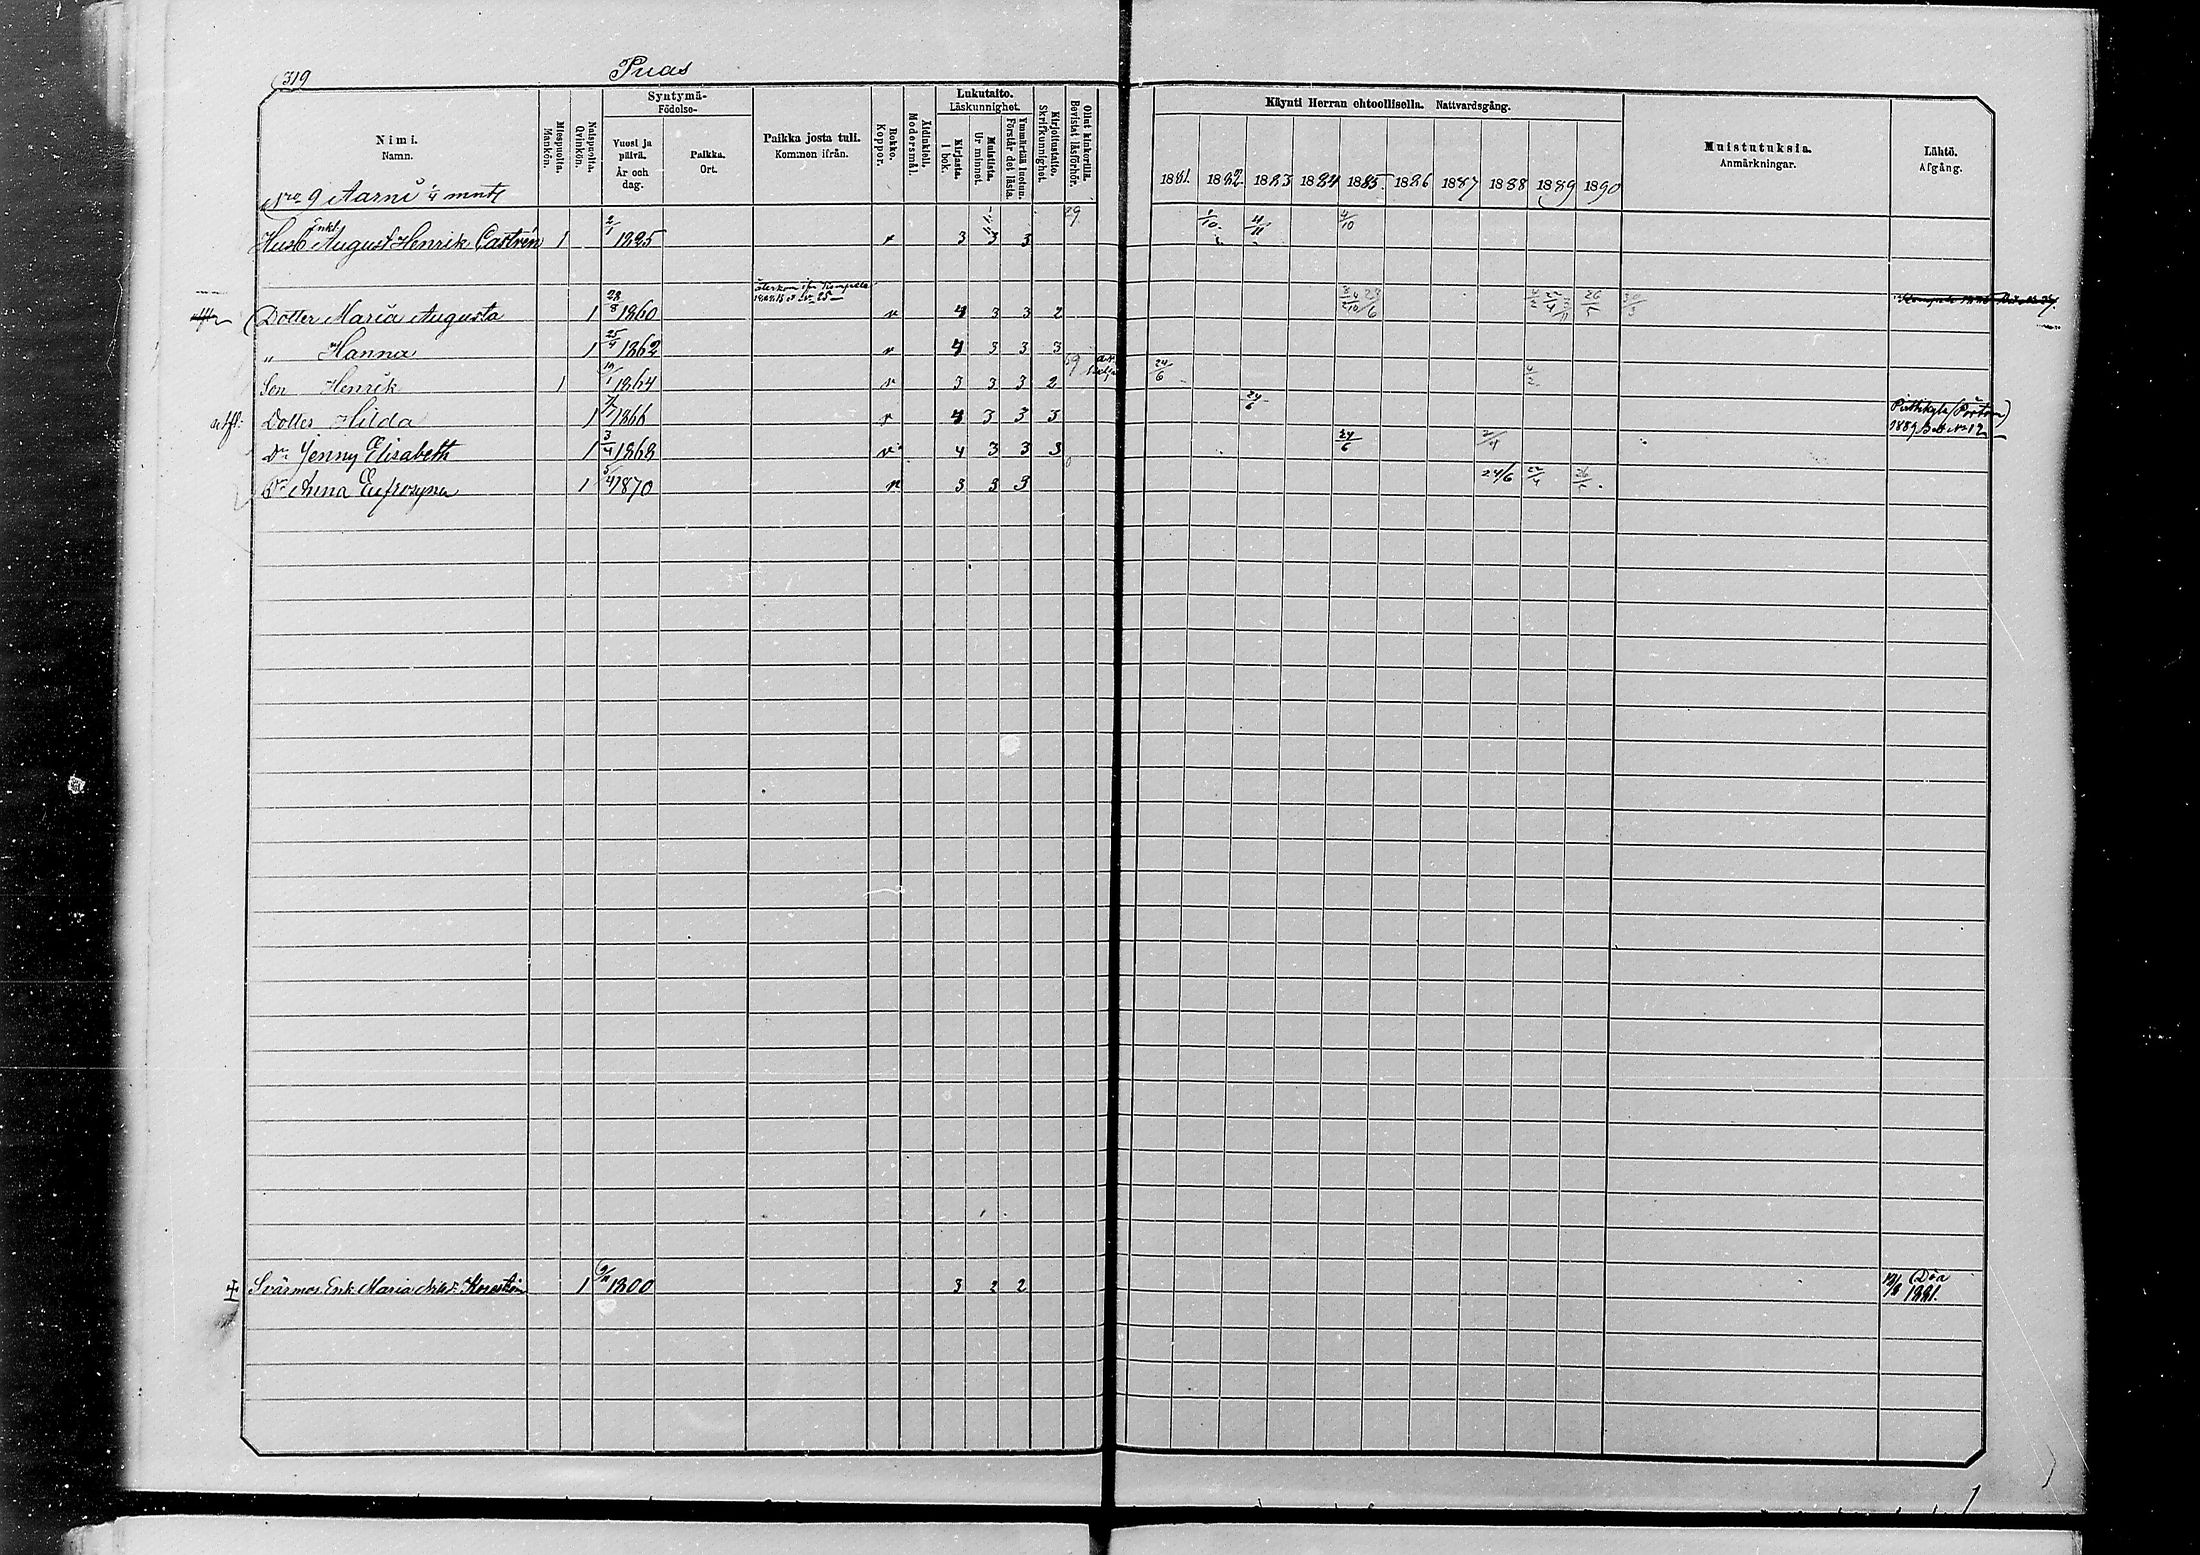 319
Puas
Nimi.
Namn.
Miespuolia. Mankön.
Naispuolia. Qvinkön.
Syntymä-
Födelse-
Vuosi ja päivä.
År och dag.
Paikka.
Ort.
Paikka josta tuli.
Kommen ifrån.
Rokko. Koppor.
Äidinkieli. Modersmål.
Lukutaito.
Läskunnighet.
Kirjasta. I bok.
Muistista. Ur minnet.
Ymmärtää luetun. Förstår det lästa.
Kirjoitustaito. Skrifkunnighet.
Ollut kinkerillä. Bevistat läsförhör.
Käynti Herran ehtoollisella. Nattvardsgång.
1881. 1882 1883 1884 1885. 1886 1887 1888 1889 1890
Muistutuksia.
Anmärkningar.
Lähtö.
Afgång.
Nro 9 Aarni 1/4 mntl
Husb Enkl August Henrik Castrén 1 2/1 1825 v 3 3 3 29 1/10 4/11 4/10
Dotter Maria Augusta 1 28/8 1860 v 4 3 3 2
" Hanna 1 25/4 1862 v 4 3 3 3
Son Henrik 1 19/1 1864 v 3 3 3 2 24/6 4/2
Dotter Hilda 1 1866 v 4 3 3 3 24/6 1889 Bet No 12
Dr Jenny Elisabeth 1 3/4 1868 v 4 3 3 3 24/6 2/4
Dr Anna Eufrosyna 1 5/4 1870 v 3 3 3 24/6 22/4
Svärmor Enk. Maria 1 1800 3 2 2 Död 1881.